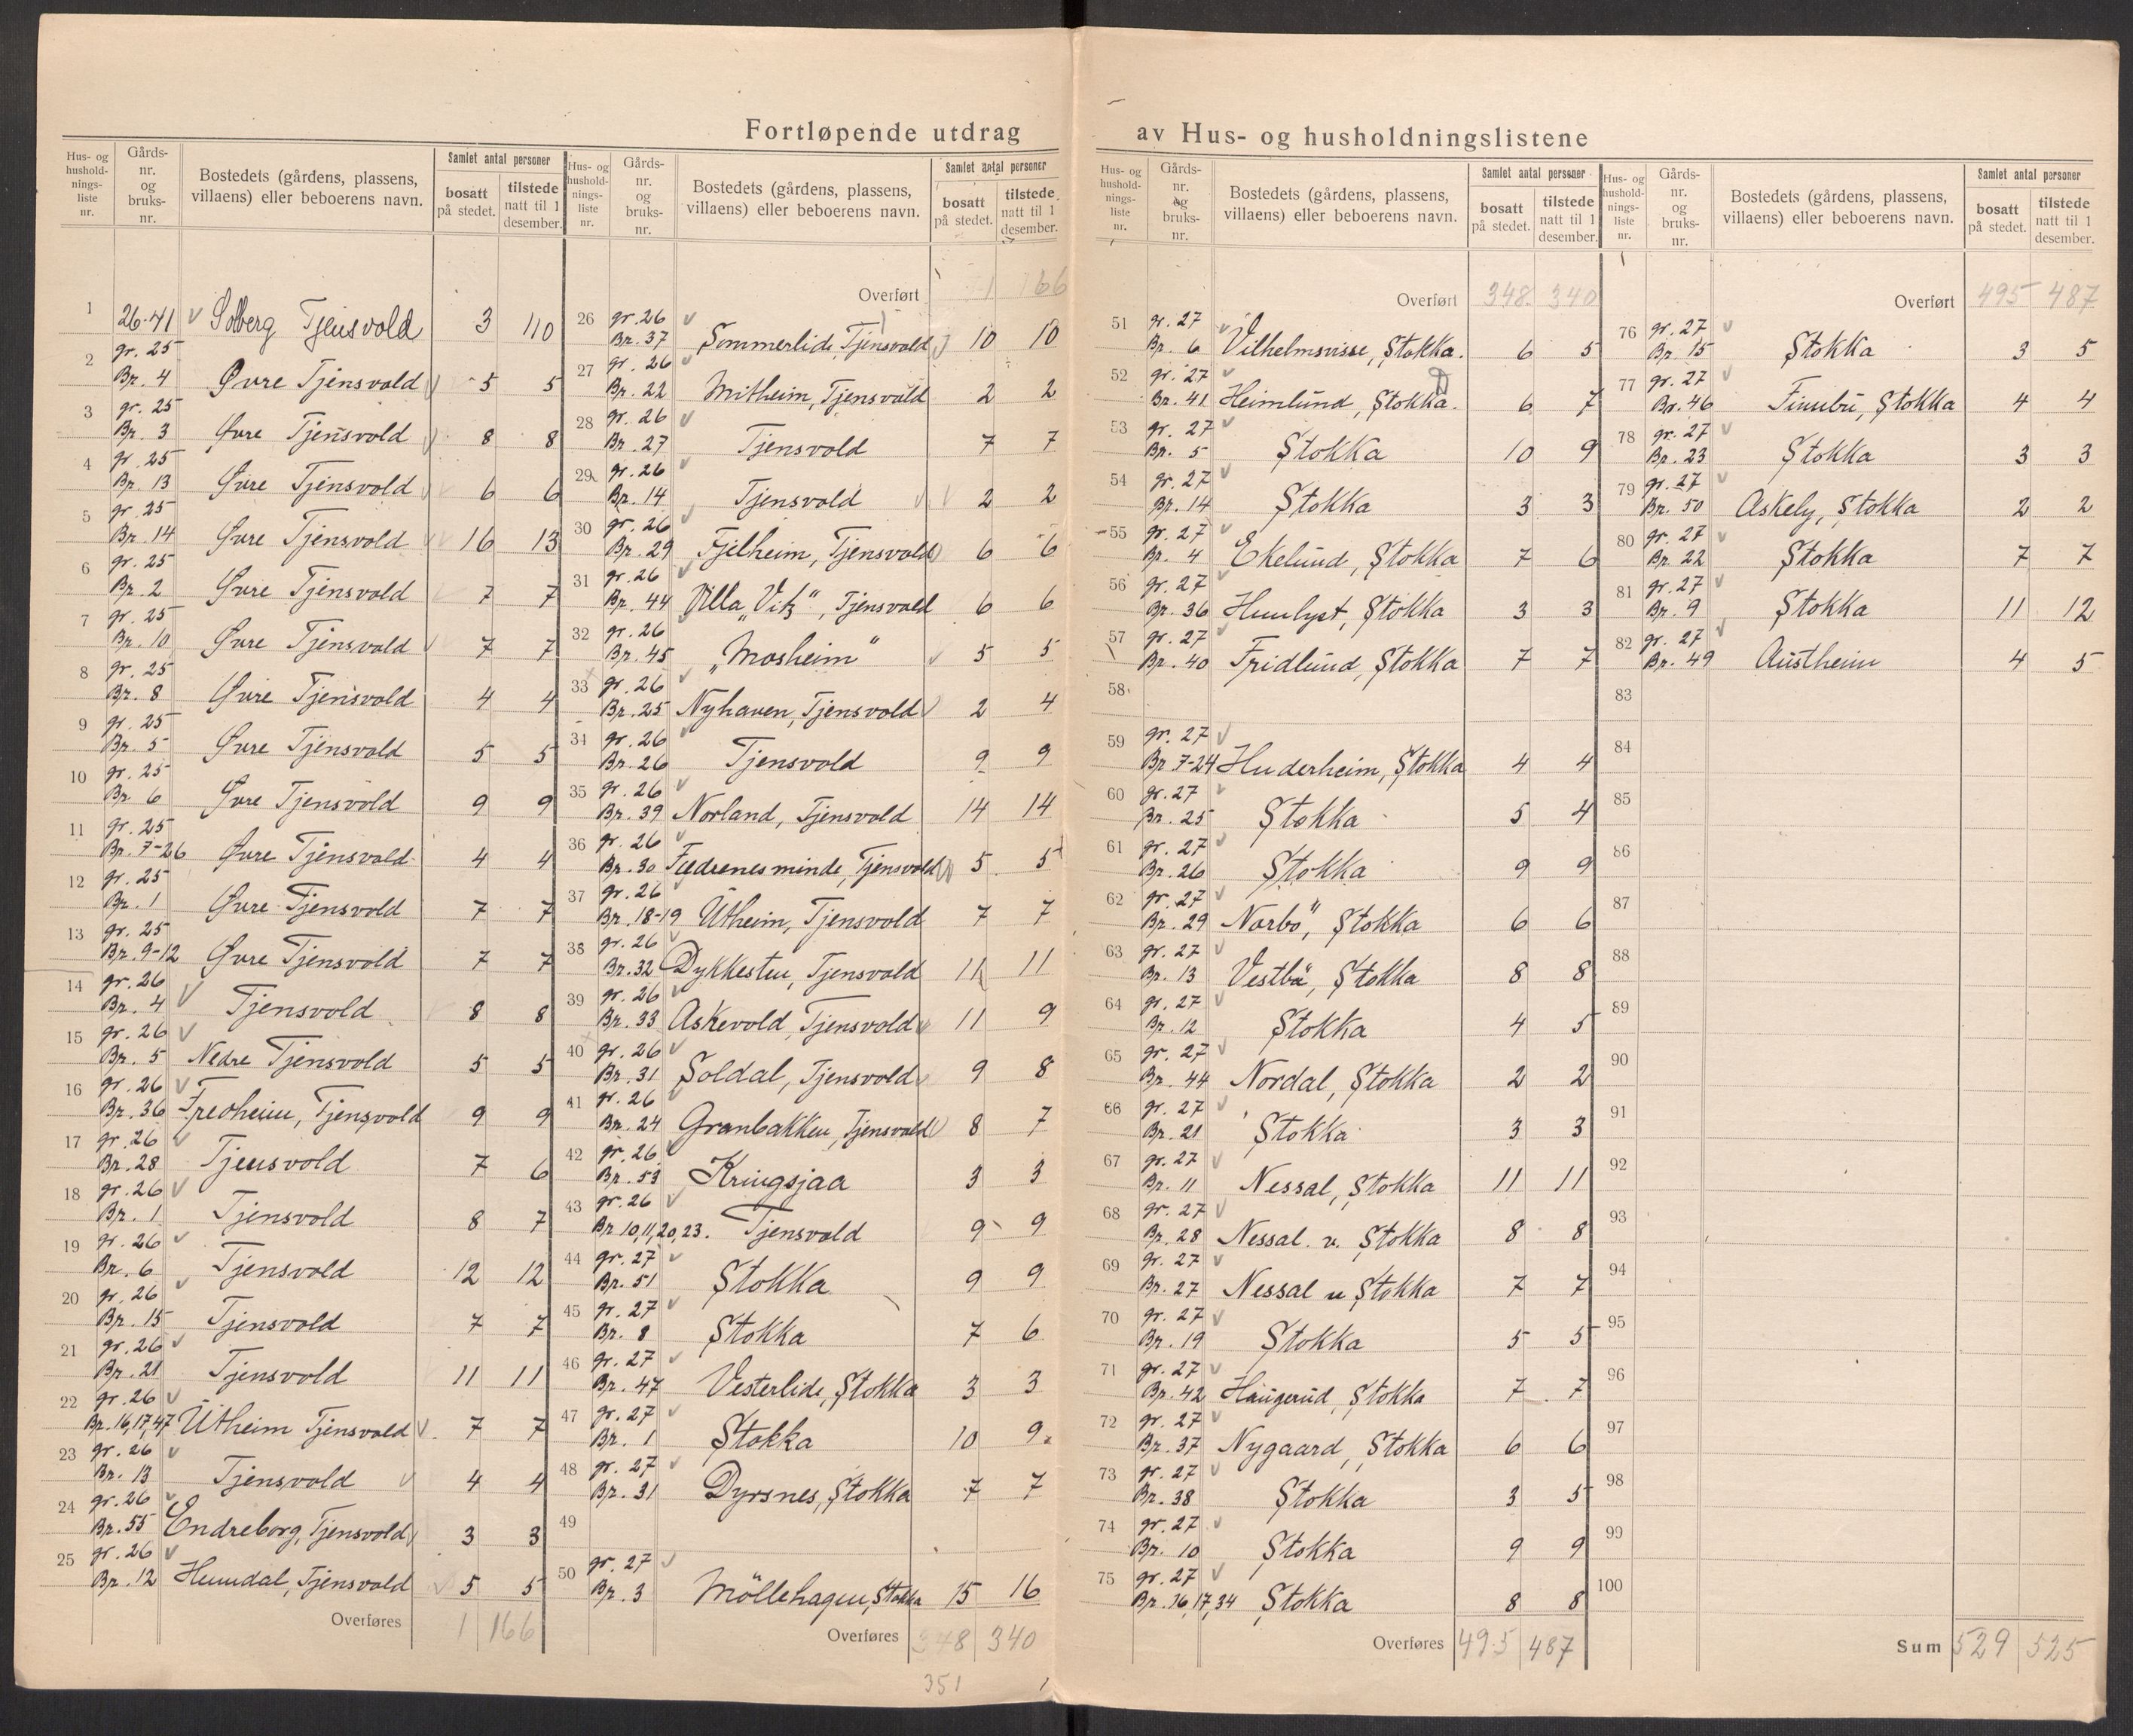 Fortløpende utdrag av Hus- og husholdningslistene
Hus- og husholdningsliste nr.
Gårds-nr. og bruks-nr.
Bostedets (gårdens, plassens, villaens) eller beboerens navn.
Samlet antal personer
bosatt på stedet.
tilstede natt til 1 desember.
1 26-41 Solberg Tjensvold 3 110
2 gr. 25 Br. 4 Øvre Tjensvold 5 5
3 gr. 25 Br. 3 Øvre Tjensvold 8 8
4 gr. 25 Br. 13 Øvre Tjensvold 6 6
5 gr. 25 Br. 14 Øvre Tjensvold 16 13
6 gr. 25 Br. 2 Øvre Tjensvold 7 7
7 gr. 25 Br. 10 Øvre Tjensvold 7 7
8 gr. 25 Br. 8 Øvre Tjensvold 4 4
9 gr. 25 Br. 5 Øvre Tjensvold 5 5
10 gr. 25 Br. 6 Øvre Tjensvold 9 9
11 gr. 25 Br. 7-26 Øvre Tjensvold 4 4
12 gr. 25 Br. 1 Øvre Tjensvold 7 7
13 gr. 25 Br. 9-12 Øvre Tjensvold 7 7
14 gr. 26 Br. 4 Tjensvold 8 8
15 gr. 26 Br. 5 Nedre Tjensvold 5 5
16 gr. 26 Br. 36 Fredheim, Tjensvold 9 9
17 gr. 26 Br. 28 Tjensvold 7 6
18 gr. 26 Br. 1 Tjensvold 8 7
19 gr. 26 Br. 6 Tjensvold 12 12
20 gr. 26 Br. 15 Tjensvold 7 7
21 gr. 26 Br. 21 Tjensvold 11 11
22 gr. 26 Br. 16,17,47 Utheim Tjensvold 7 7
23 gr. 26 Br. 13 Tjensvold 4 4
24 gr. 26 Br. 55 Endreborg, Tjensvold 3 3
25 gr. 26 Br. 12 Humdal, Tjensvold 5 5
Overføres 1 166
Hus- og husholdningsliste nr.
Gårds-nr. og bruks-nr.
Bostedets (gårdens, plassens, villaens) eller beboerens navn.
Samlet antal personer
bosatt på stedet.
tilstede natt til 1 desember.
Overført 1 166
26 gr. 26 Br. 37 Sommerlide, Tjensvold 10 10
27 gr. 26 Br. 22 Mitheim, Tjensvold 2 2
28 gr. 26 Br. 27 Tjensvold 7 7
29 gr. 26 Br. 14 Tjensvold 2 2
30 gr. 26 Br. 29 Fjelheim, Tjensvold 6 6
31 gr. 26 Br. 44 Villa „Vik", Tjensvold 6 6
32 gr. 26 Br. 45 „Mosheim" 5 5
33 gr. 26 Br. 25 Nyhaven, Tjensvold 2 4
34 gr. 26 Br. 26 Tjensvold 9 9
35 gr. 26 Br. 39 Norland, Tjensvold 14 14
36 gr. 26 Br. 30 Fædrenesminde, Tjensvold 5 5
37 gr. 26 Br. 18-19 Utheim, Tjensvold 7 7
38 gr. 26 Br. 32 Dykkesten, Tjensvold 11 11
39 gr. 26 Br. 33 Askevold, Tjensvold 11 9
40 gr. 26 Br. 31 Soldal, Tjensvold 9 8
41 gr. 26 Br. 24 Granbakken, Tjensvold 8 7
42 gr. 26 Br. 53 Kringsjaa 3 3
43 gr. 26 Br. 10,11,20,23. Tjensvold 9 9
44 gr. 27 Br. 51 Stokka 9 9
45 gr. 27 Br. 8 Stokka 7 6
46 gr. 27 Br. 47 Vesterlide, Stokka 3 3
47 gr. 27 Br. 1 Stokka 10 9
48 gr. 27 Br. 31 Dyrsnes, Stokka 7 7
49
50 gr. 27 Br. 3 Möllehagen, Stokka 15 16
Overføres 348 340
351
Hus- og husholdningsliste nr.
Gårds-nr. og bruks-nr.
Bostedets (gårdens, plassens, villaens) eller beboerens navn.
Samlet antal personer
bosatt på stedet.
tilstede natt til 1 desember.
Overført 348 340
51 gr. 27 Br. 6 Vilhelmsvisse, Stokka. 6 5
52 gr. 27 Br. 41 Heimlund, Stokka. 6 7
53 gr. 27 Br. 5 Stokka 10 9
54 gr. 27 Br. 14 Stokka 3 3
55 gr. 27 Br. 4 Ekelund, Stokka 7 6
56 gr. 27 Br. 36 Humlyst, Stokka 3 3
57 gr. 27 Br. 40 Fridlund, Stokka 7 7
58
59 gr. 27 Br. 7-24 Huderheim, Stokka 4 4
60 gr. 27 Br. 25 Stokka 5 4
61 gr. 27 Br. 26 Stokka 9 9
62 gr. 27 Br. 29 Narbö, Stokka 6 6
63 gr. 27 Br. 13 Vestbö, Stokka 8 8
64 gr. 27 Br. 12 Stokka 4 5
65 gr. 27 Br. 44 Nordal, Stokka 2 2
66 gr. 27 Br. 21 Stokka 3 3
67 gr. 27 Br. 11 Nessal, Stokka 11 11
68 gr. 27 Br. 28 Nessal. v. Stokka 8 8
69 gr. 27 Br. 27 Nessal v Stokka 7 7
70 gr. 27 Br. 19 Stokka 5 5
71 gr. 27 Br. 42 Haugerud, Stokka 7 7
72 gr. 27 Br. 37 Nygaard, Stokka 6 6
73 gr. 27 Br. 38 Stokka 3 5
74 gr. 27 Br. 10 Stokka 9 9
75 gr. 27 Br. 16,17,34 Stokka 8 8
Overføres 495 487
Hus- og husholdningsliste nr.
Gårds-nr. og bruks-nr.
Bostedets (gårdens, plassens, villaens) eller beboerens navn.
Samlet antal personer
bosatt på stedet.
tilstede natt til 1 desember.
Overført 495 487
76 gr. 27 Br. 15 Stokka 3 5
77 gr. 27 Br. 46 Finnbu, Stokka 4 4
78 gr. 27 Br. 23 Stokka 3 3
79 gr. 27 Br. 50 Askely, Stokka 2 2
80 gr. 27 Br. 22 Stokka 7 7
81 gr. 27 Br. 9 Stokka 11 12
82 gr. 27 Br. 49 Austheim 4 5
83
84
85
86
87
88
89
90
91
92
93
94
95
96
97
98
99
100
Sum 529 525